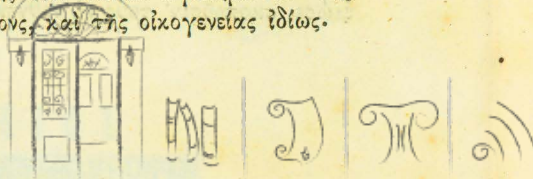 ονς, καὶ τῆς οἰκογενείας ἰδίως.